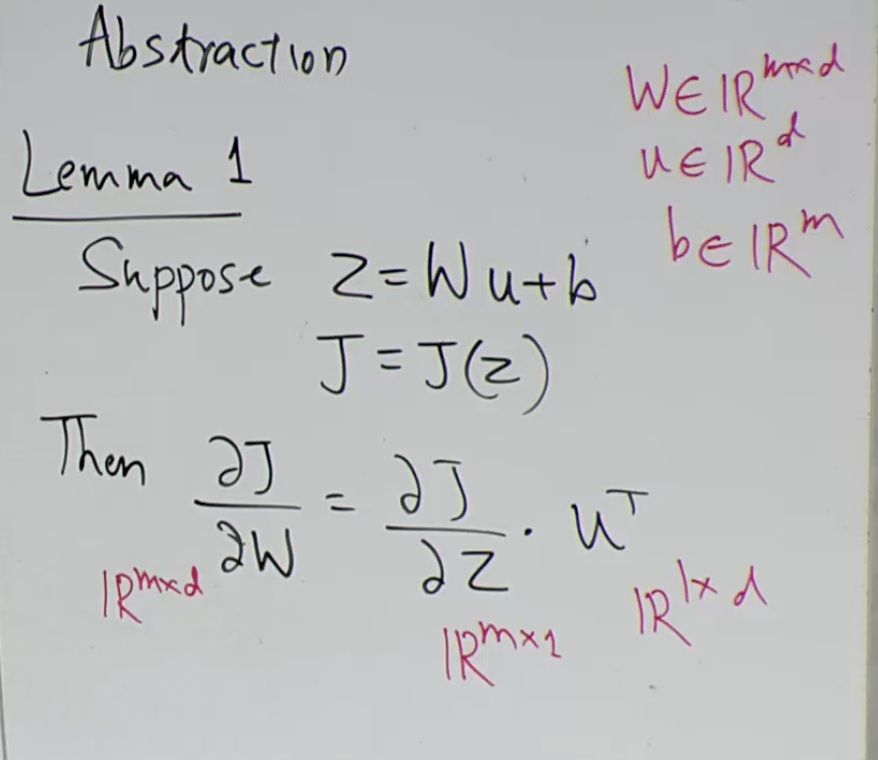 Abstraction
W∈ℝ^{m×d}
u∈ℝ^d
b∈ℝ^m
Lemma 1
Suppose z=Wu+b
J=J(z)
Then ∂J/∂W = ∂J/∂z · u^T
ℝ^{m×d} ℝ^{m×1} ℝ^{1×d}